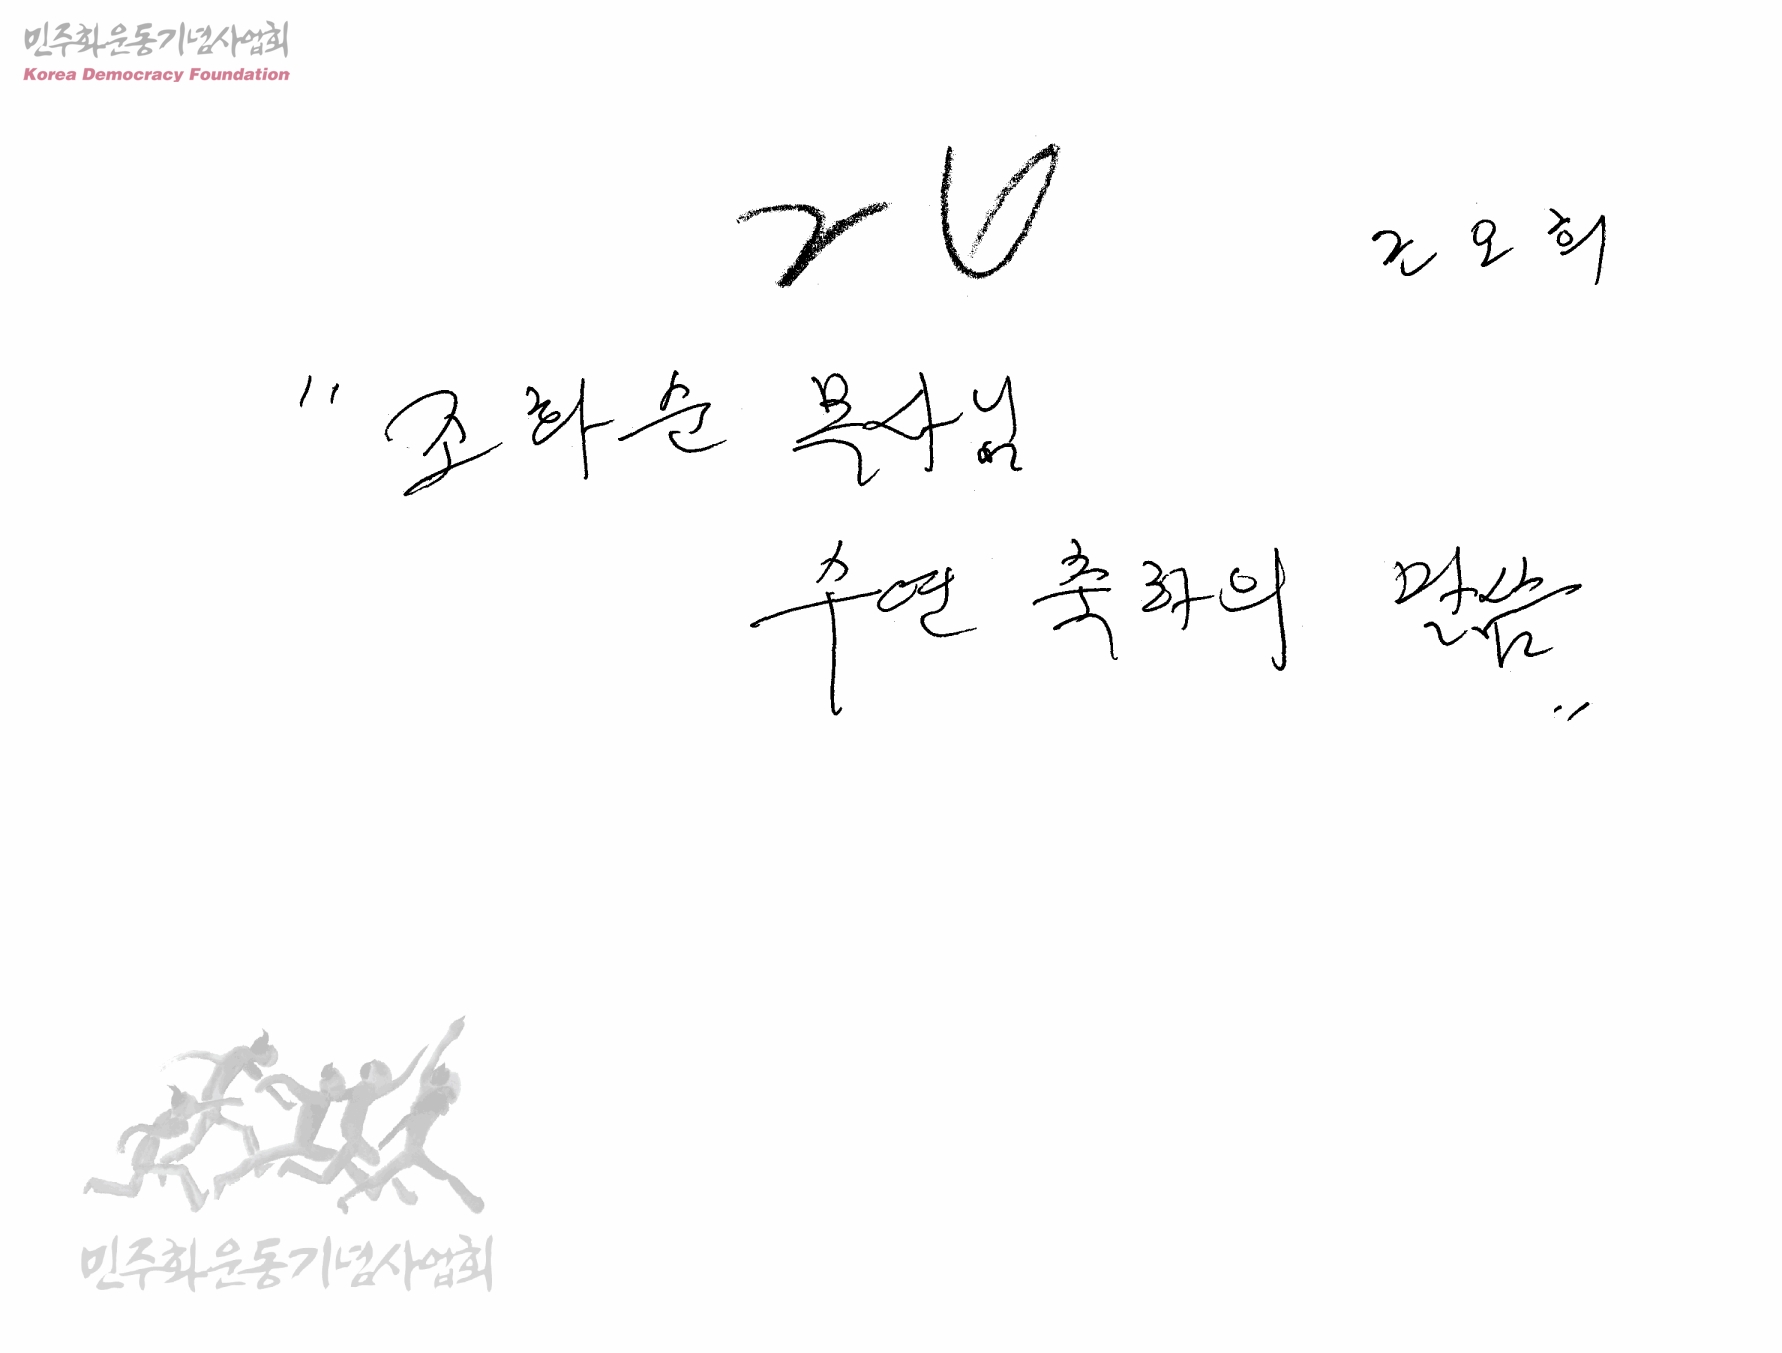 민주화운동기념사업회
Korea Democracy Foundation
조오희
"조화순 목사님
수연 축하의 말씀"
민주화운동기념사업회